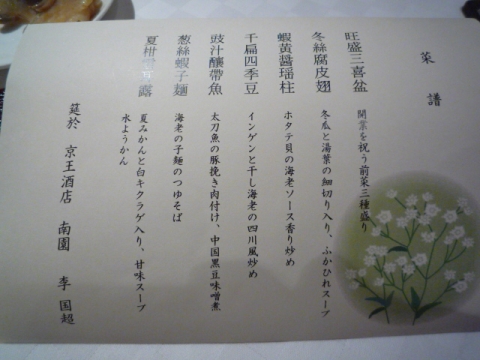 菜譜
旺盛三喜盆
開業を祝う前菜三種盛り
冬絲腐皮翅
冬瓜と湯葉の細切り入り、ふかひれスープ
蝦黄醤瑶柱
ホタテ貝の海老ソース香り炒め
干扁四季豆
インゲンと干し海老の四川風炒め
豉汁釀帶魚
太刀魚の豚挽き肉付け、中国黒豆味噌煮
葱絲蝦子麺
海老の子麺のつゆそば
夏柑雪耳露
夏みかんと白キクラゲ入り、甘味スープ
水ようかん
筵於 京王酒店 南園 李国超